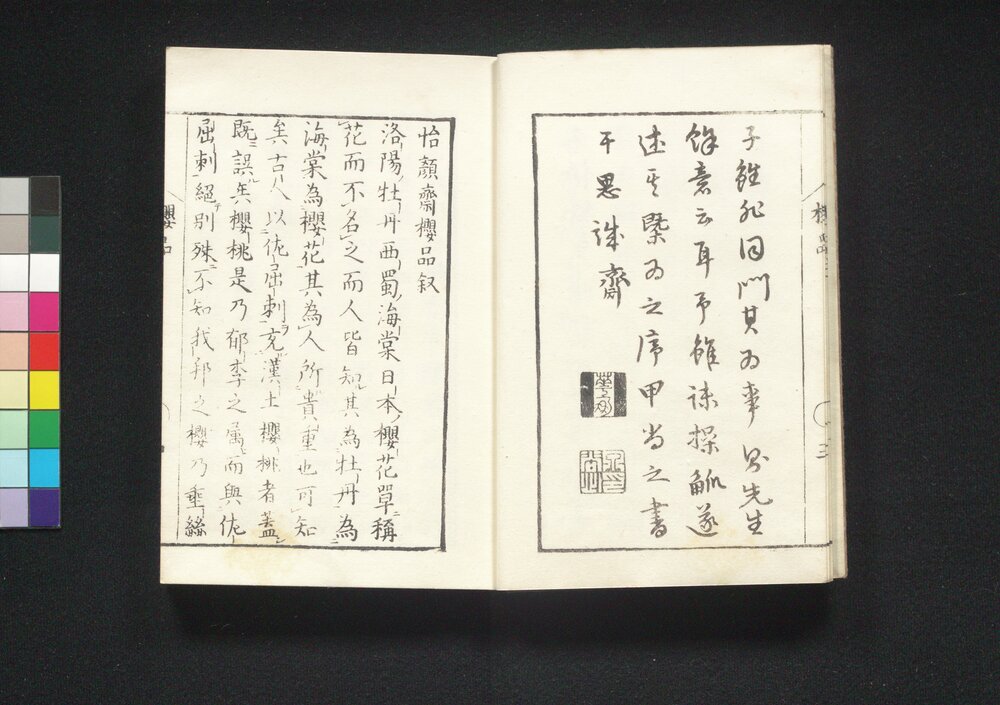 子雖非同門其為事則先生
餘意云耳予雖疎操觚遂
述其槩為之序甲尚之書
于思誠齋
櫻品
三
怡顏齋櫻品叙
洛陽牡丹西蜀海棠日本櫻花單稱
花而不名之而人皆知其為牡丹為
海棠為櫻花其為人所貴重也可知
矣古人以佐屈刺充漢土櫻桃者蓋
既誤矣櫻桃是乃郁李之屬而與佐
屈刺絕別殊不知我邦之櫻乃垂絲
櫻品